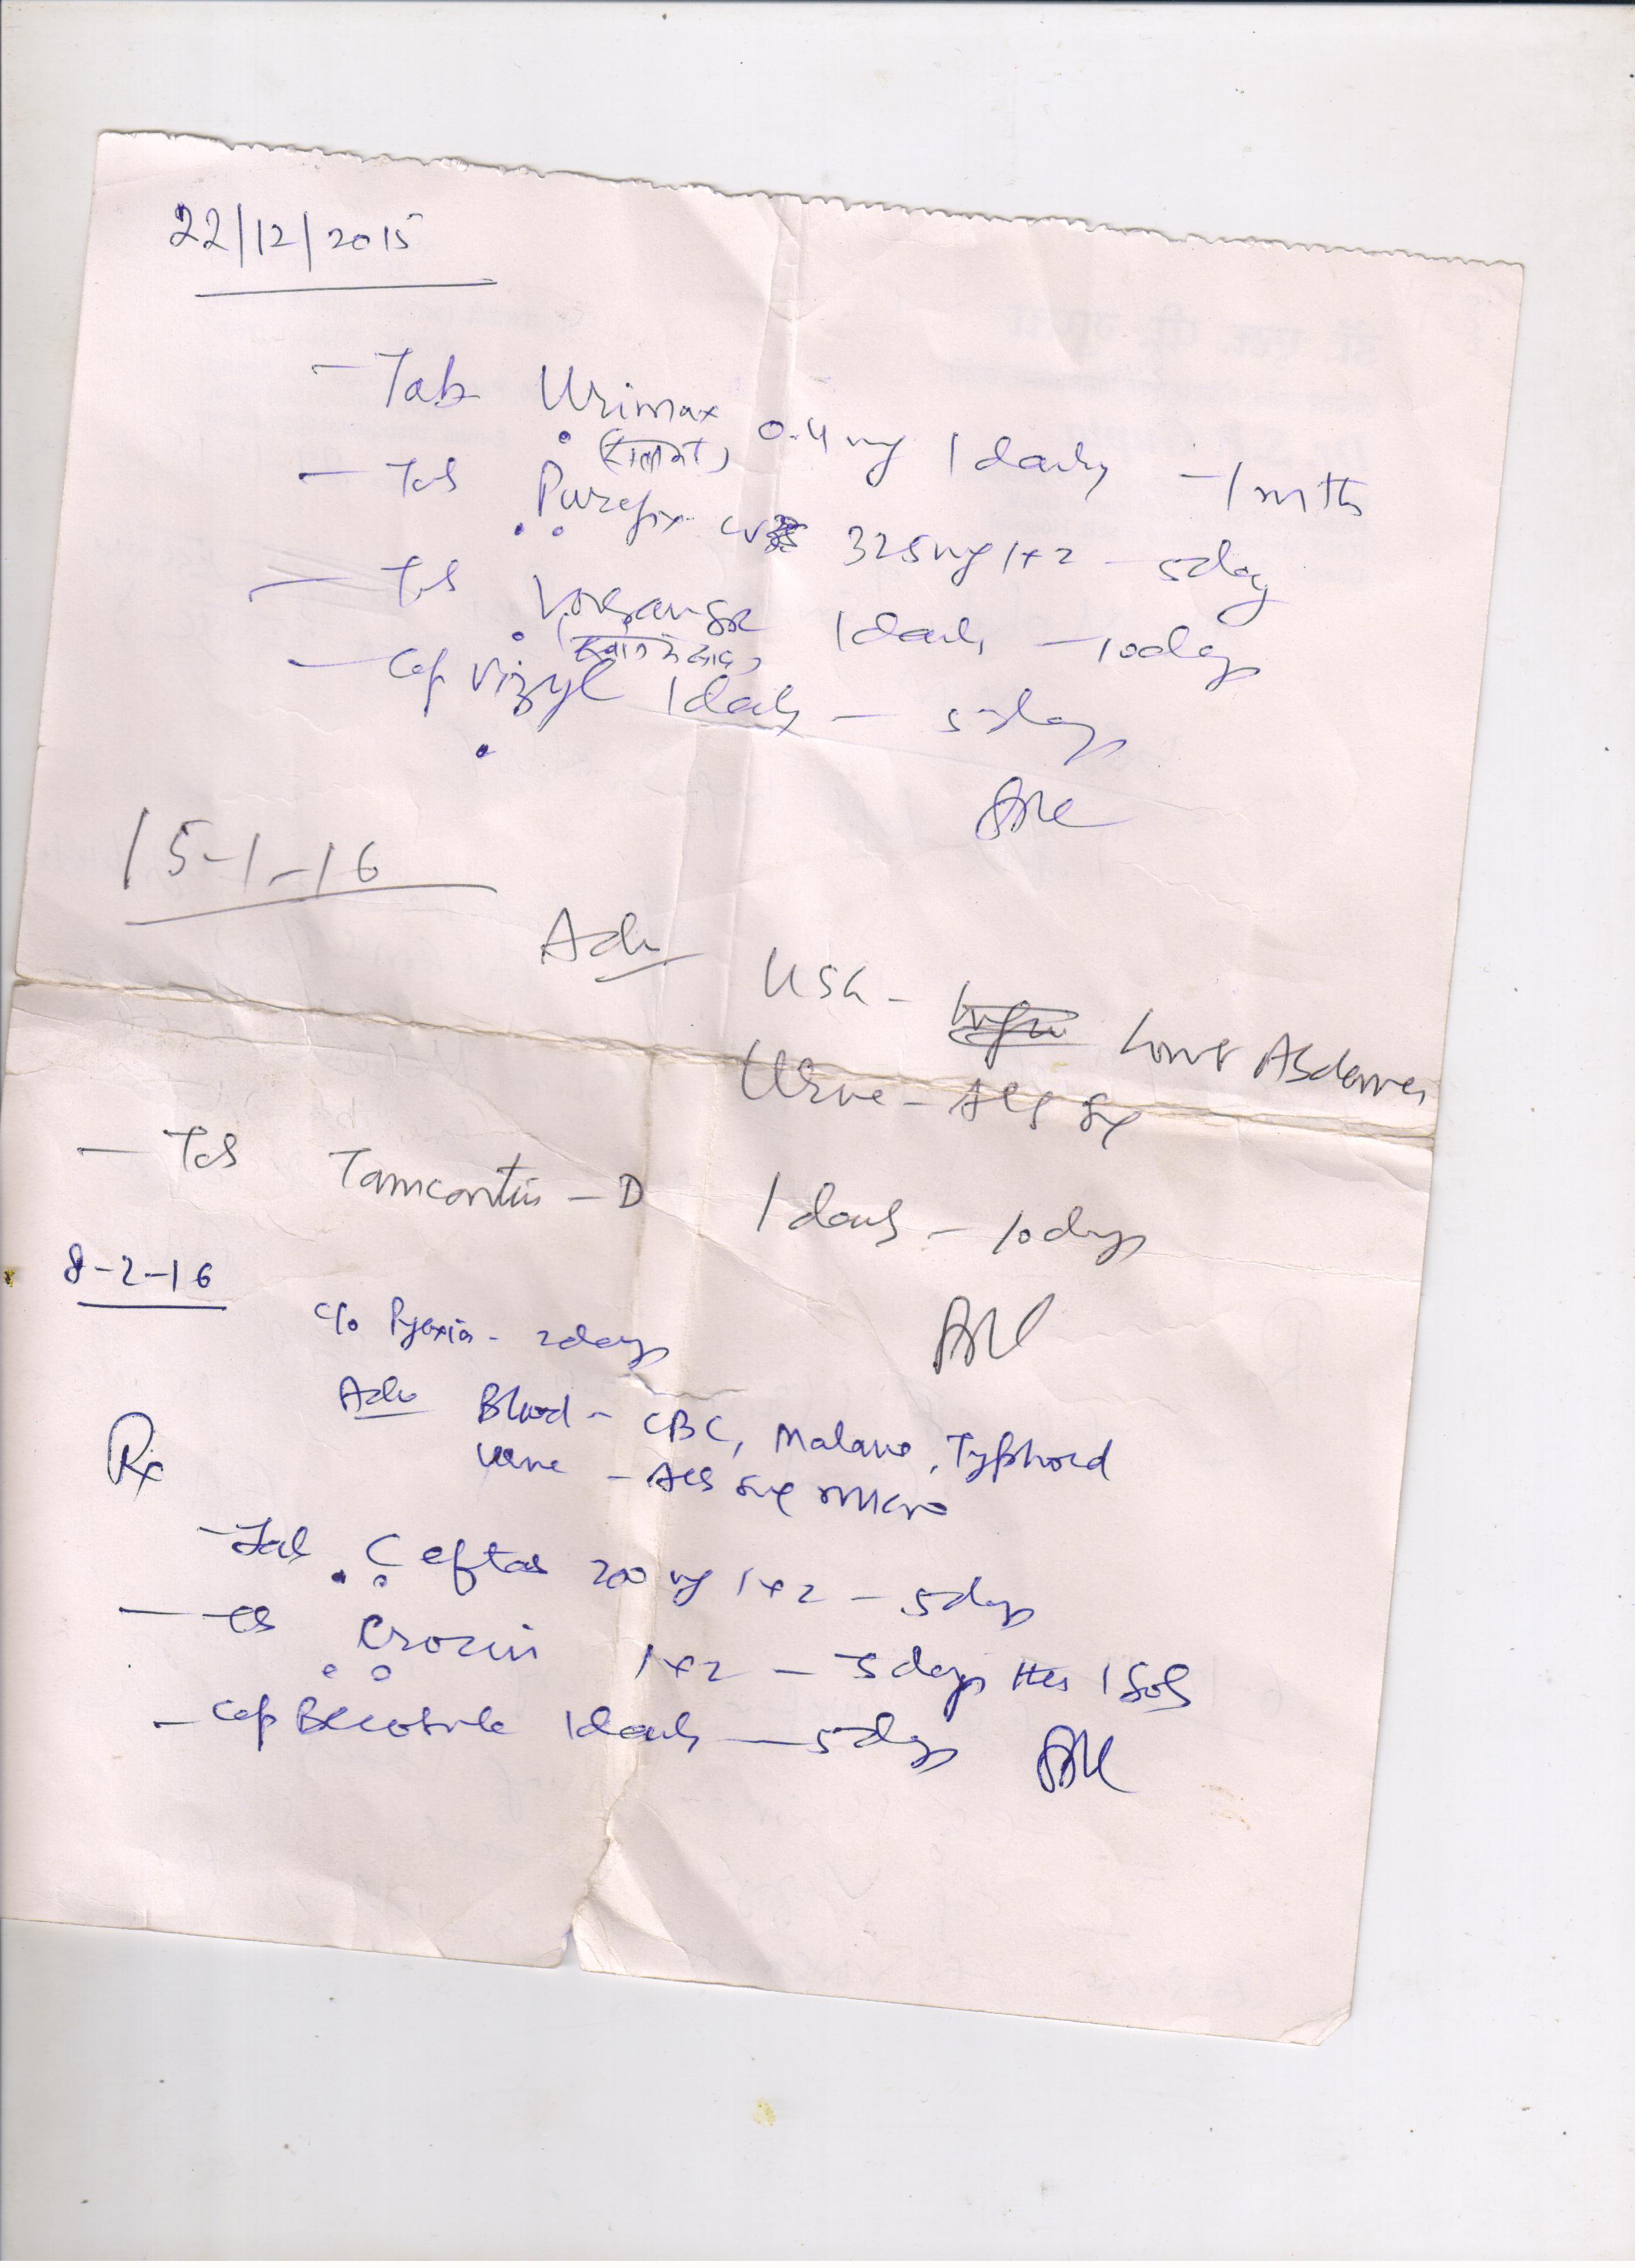 22/12/2015
- Tab Urimax 0.4 mg 1 daily - 1 mth
- Tab Purefix CV 325 mg 1x2 - 5 day
- Tab 1 daily - 10 days
- Cap Vizyl 1 daily - 5 days
15-1-16
Adv USG - Lower Abdomen
Urine - Alb Sug
- Tab Tamcontin - D 1 daily - 10 days
8-2-16
c/o Pyrexia - 2 days
Adv Blood - CBC, Malaria, Typhoid
Urine - Alb Sug Micro
Rx
- Tab Ceftas 200 mg 1x2 - 5 days
- Tab Crocin 1x2 - 3 days then 1 SOS
- Cap Becosule 1 daily - 5 days